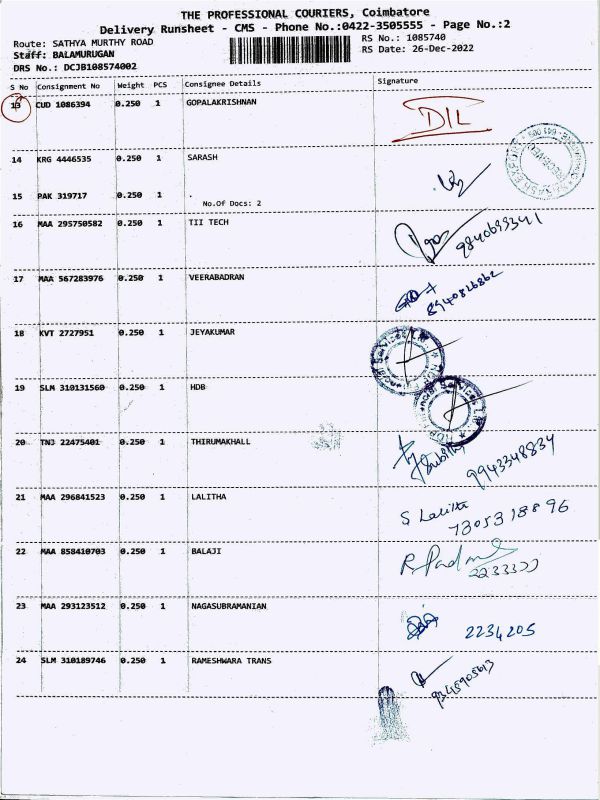 THE PROFESSIONAL COURIERS, Coimbatore
Delivery Runsheet - CMS - Phone No.:0422-3505555 - Page No.:2
Route: SATHYA MURTHY ROAD RS No.: 1085740
Staff: BALAMURUGAN RS Date: 26-Dec-2022
DRS No.: DCJB108574002
S No Consignment No Weight PCS Consignee Details Signature
13 CUD 1086394 0.250 1 GOPALAKRISHNAN DIL
14 KRG 4446535 0.250 1 SARASH
RECEIVED
15 PAK 319717 0.250 1 .
No.Of Docs: 2
16 MAA 295750582 0.250 1 TII TECH
17 MAA 567283976 0.250 1 VEERABADRAN 8940826862
18 KVT 2727951 0.250 1 JEYAKUMAR
19 SLM 310131560 0.250 1 HDB
20 TNJ 22475401 0.250 1 THIRUMAKHALL 9943348834
21 MAA 296841523 0.250 1 LALITHA S Lalitha
7305318896
22 MAA 858410703 0.250 1 BALAJI
23 MAA 293123512 0.250 1 NAGASUBRAMANIAN 2234205
24 SLM 310189746 0.250 1 RAMESHWARA TRANS